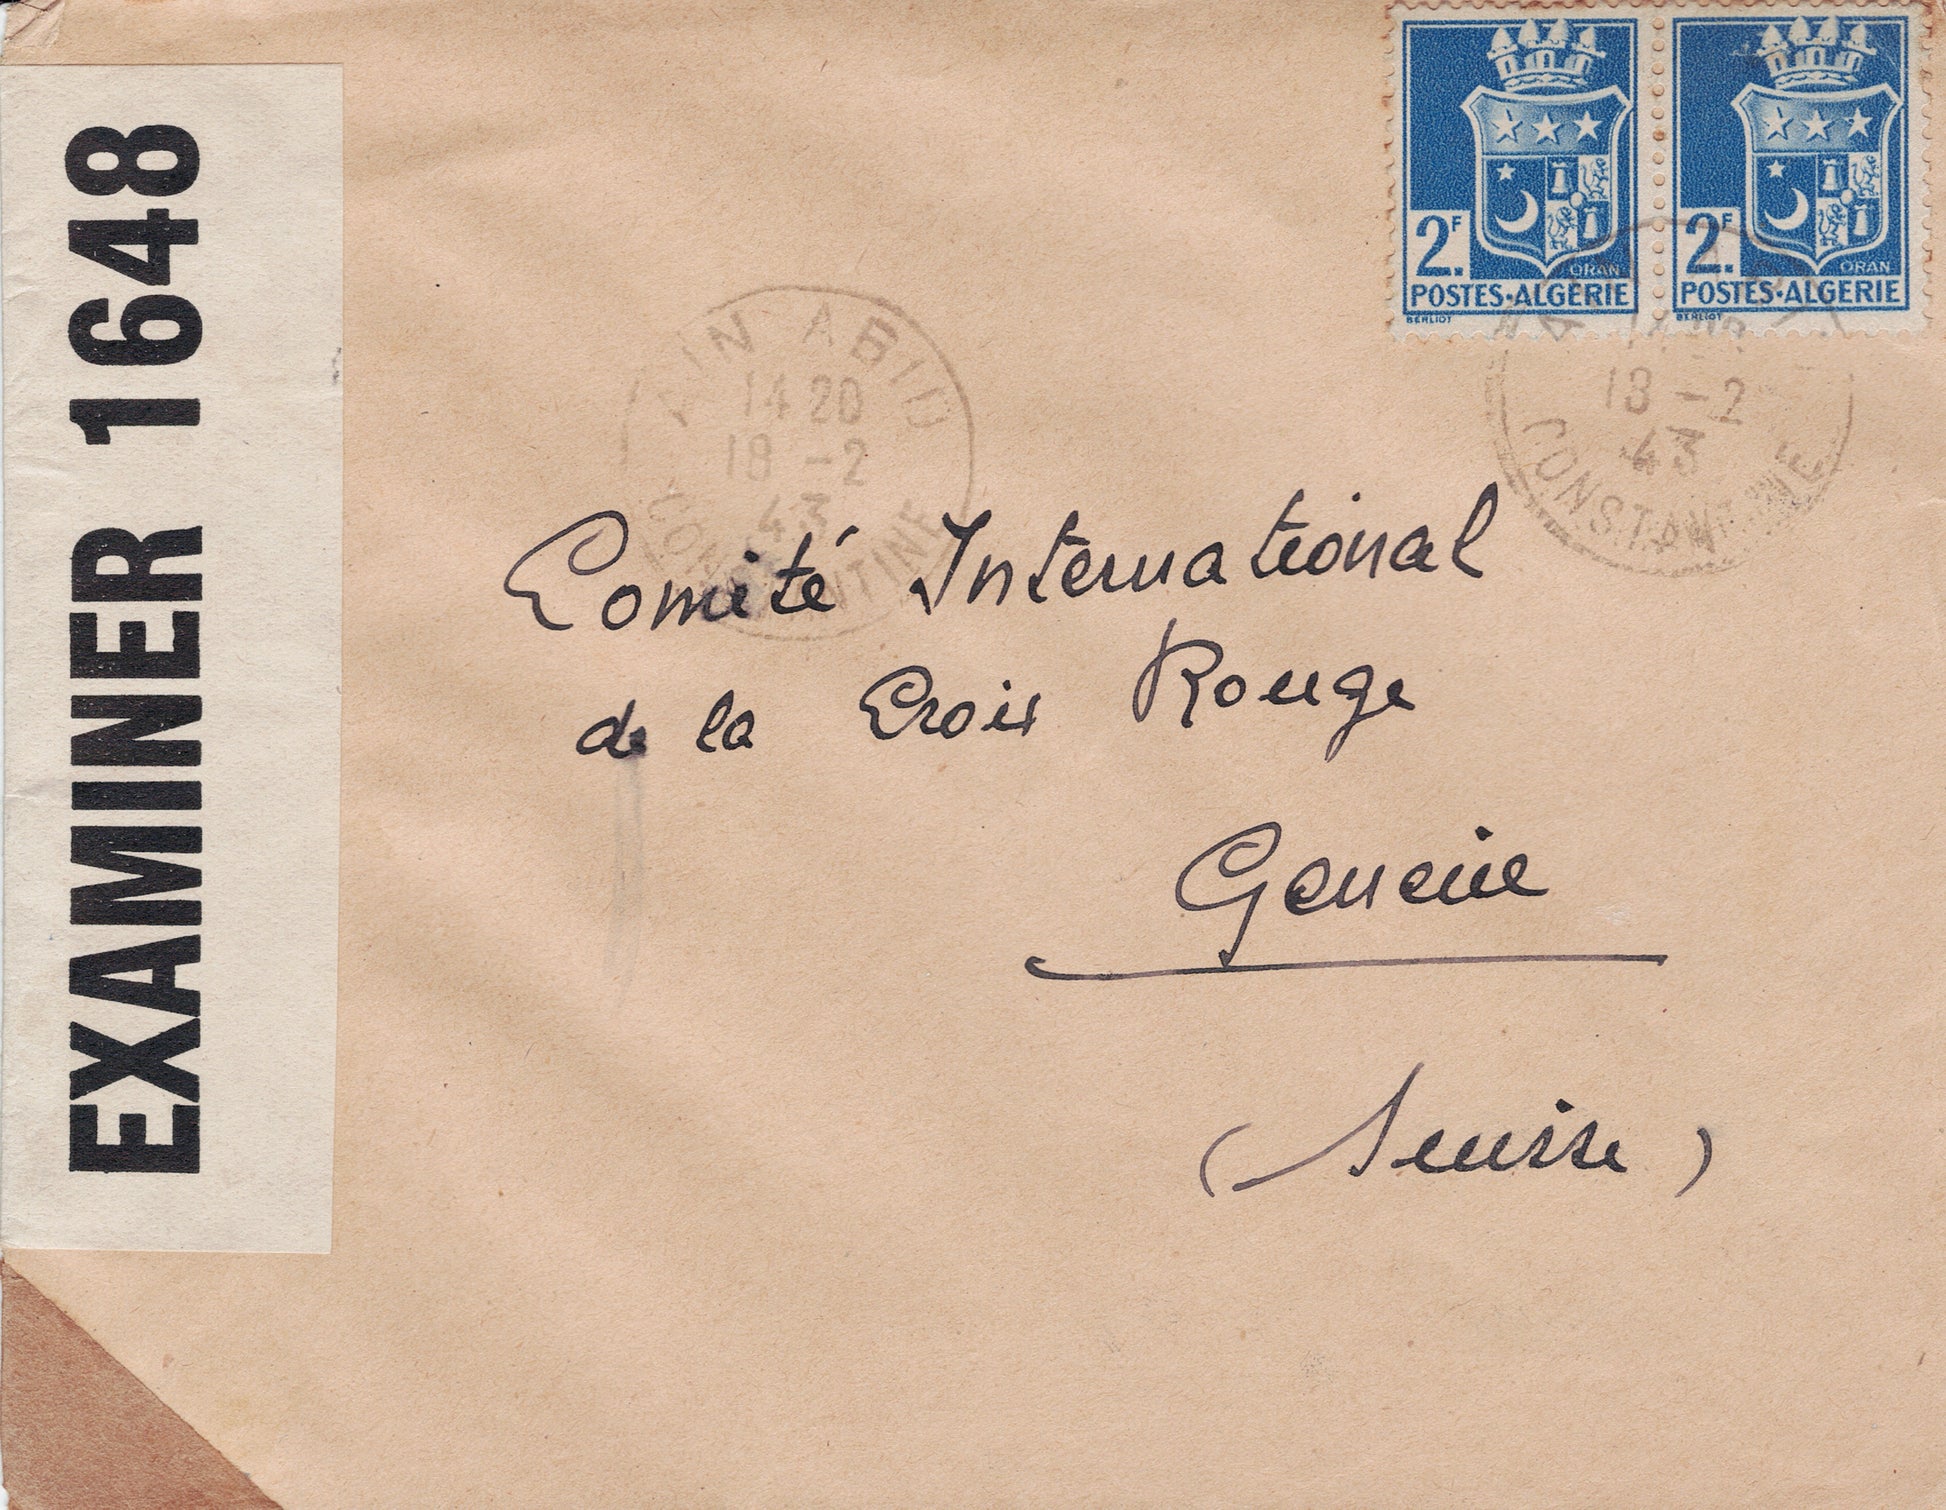 EXAMINER 1648
2F.
ORAN
POSTES·ALGERIE
BERLIOT
2F.
ORAN
POSTES·ALGERIE
BERLIOT
AIN ABID
14 20
18 -2
43
CONSTANTINE
18 -2
43
CONSTANTINE
Comité International
de la Croix Rouge
Geneve
(Suisse)